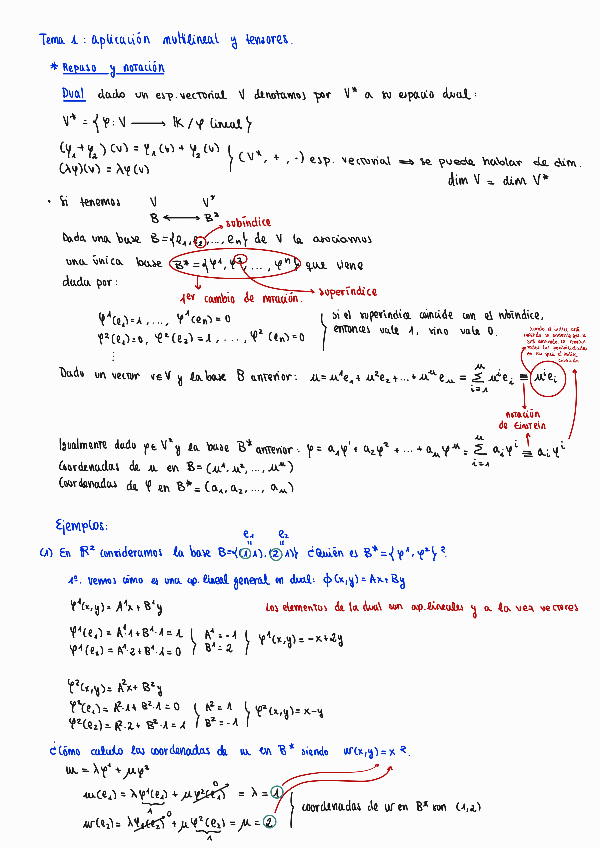 Tema 1: aplicación multilineal y tensores.
* Repaso y notación
Dual dado un esp. vectorial V denotamos por V* a su espacio dual:
V* = { φ: V → K / φ lineal }
(φ₁+φ₂)(v) = φ₁(v) + φ₂(v)
(λφ)(v) = λφ(v)
(V*, +, ·) esp. vectorial ⟹ se puede hablar de dim.
dim V = dim V*
· Si tenemos V V*
B ⟷ B*
subíndice
Dada una base B={e₁,e₂,...,en} de V le asociamos
una única base B*={φ¹,φ²,...,φⁿ} que viene
dada por:
1er cambio de notación.
superíndice
φ¹(e₁)=1, ..., φ¹(en)=0
φ²(e₁)=0, φ²(e₂)=1, ..., φ²(en)=0
⋮
si el superíndice coincide con el subíndice,
entonces vale 1, sino vale 0.
Dado un vector v∈V y la base B anterior: u=u¹e₁+u²e₂+...+uⁿen = Σ i=1 n uⁱeᵢ ≡ uⁱeᵢ
notación
de Einstein
Igualmente dado φ∈V* y la base B* anterior: φ=a₁φ¹+a₂φ²+...+anφⁿ = Σ i=1 n aᵢφⁱ ≡ aᵢφⁱ
Coordenadas de u en B=(u¹,u²,...,uⁿ)
Coordenadas de φ en B*=(a₁,a₂,...,an)
Ejemplos:
e₁ e₂
(1) En R² consideramos la base B={(1,1),(2,1)} ¿Quién es B*={φ¹,φ²}?
1º. vemos cómo es una ap. lineal general en dual: ϕ(x,y)=Ax+By
φ¹(x,y)=A¹x+B¹y
Los elementos de la dual son ap. lineales y a la vez vectores
φ¹(e₁)=A¹·1+B¹·1=1
φ¹(e₂)=A¹·2+B¹·1=0
A¹=-1
B¹=2
φ¹(x,y)=-x+2y
φ²(x,y)=A²x+B²y
φ²(e₁)=A²·1+B²·1=0
φ²(e₂)=A²·2+B²·1=1
A²=1
B²=-1
φ²(x,y)=x-y
¿Cómo calculo las coordenadas de w en B* siendo w(x,y)=x?
w=λφ¹+μφ²
w(e₁)=λφ¹(e₁)+μφ²(e₁) = λ = 1
1 0
w(e₂)=λφ¹(e₂)+μφ²(e₂)=μ=2
0 1
coordenadas de w en B* son (1,2)